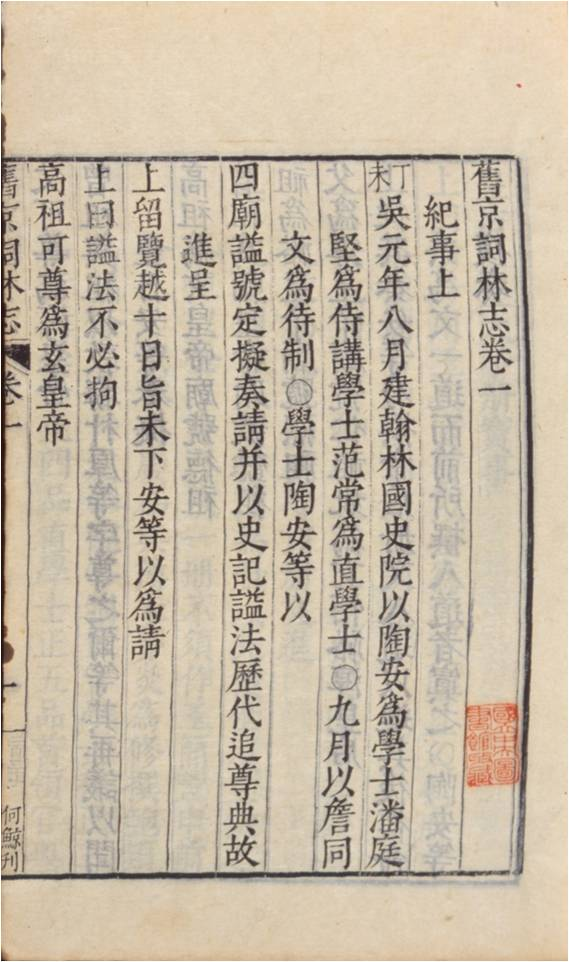 舊京詞林志卷一
紀事上
丁未吳元年八月建翰林國史院以陶安爲學士潘庭
堅爲侍講學士范常爲直學士○九月以詹同
文爲待制○學士陶安等以
四廟謚號定擬奏請并以史記謚法歷代追尊典故
進呈
上留覽越十日旨未下安等以爲請
上曰謚法不必拘
高祖可尊爲玄皇帝
舊京詞林志 卷一 一 何鯨刊